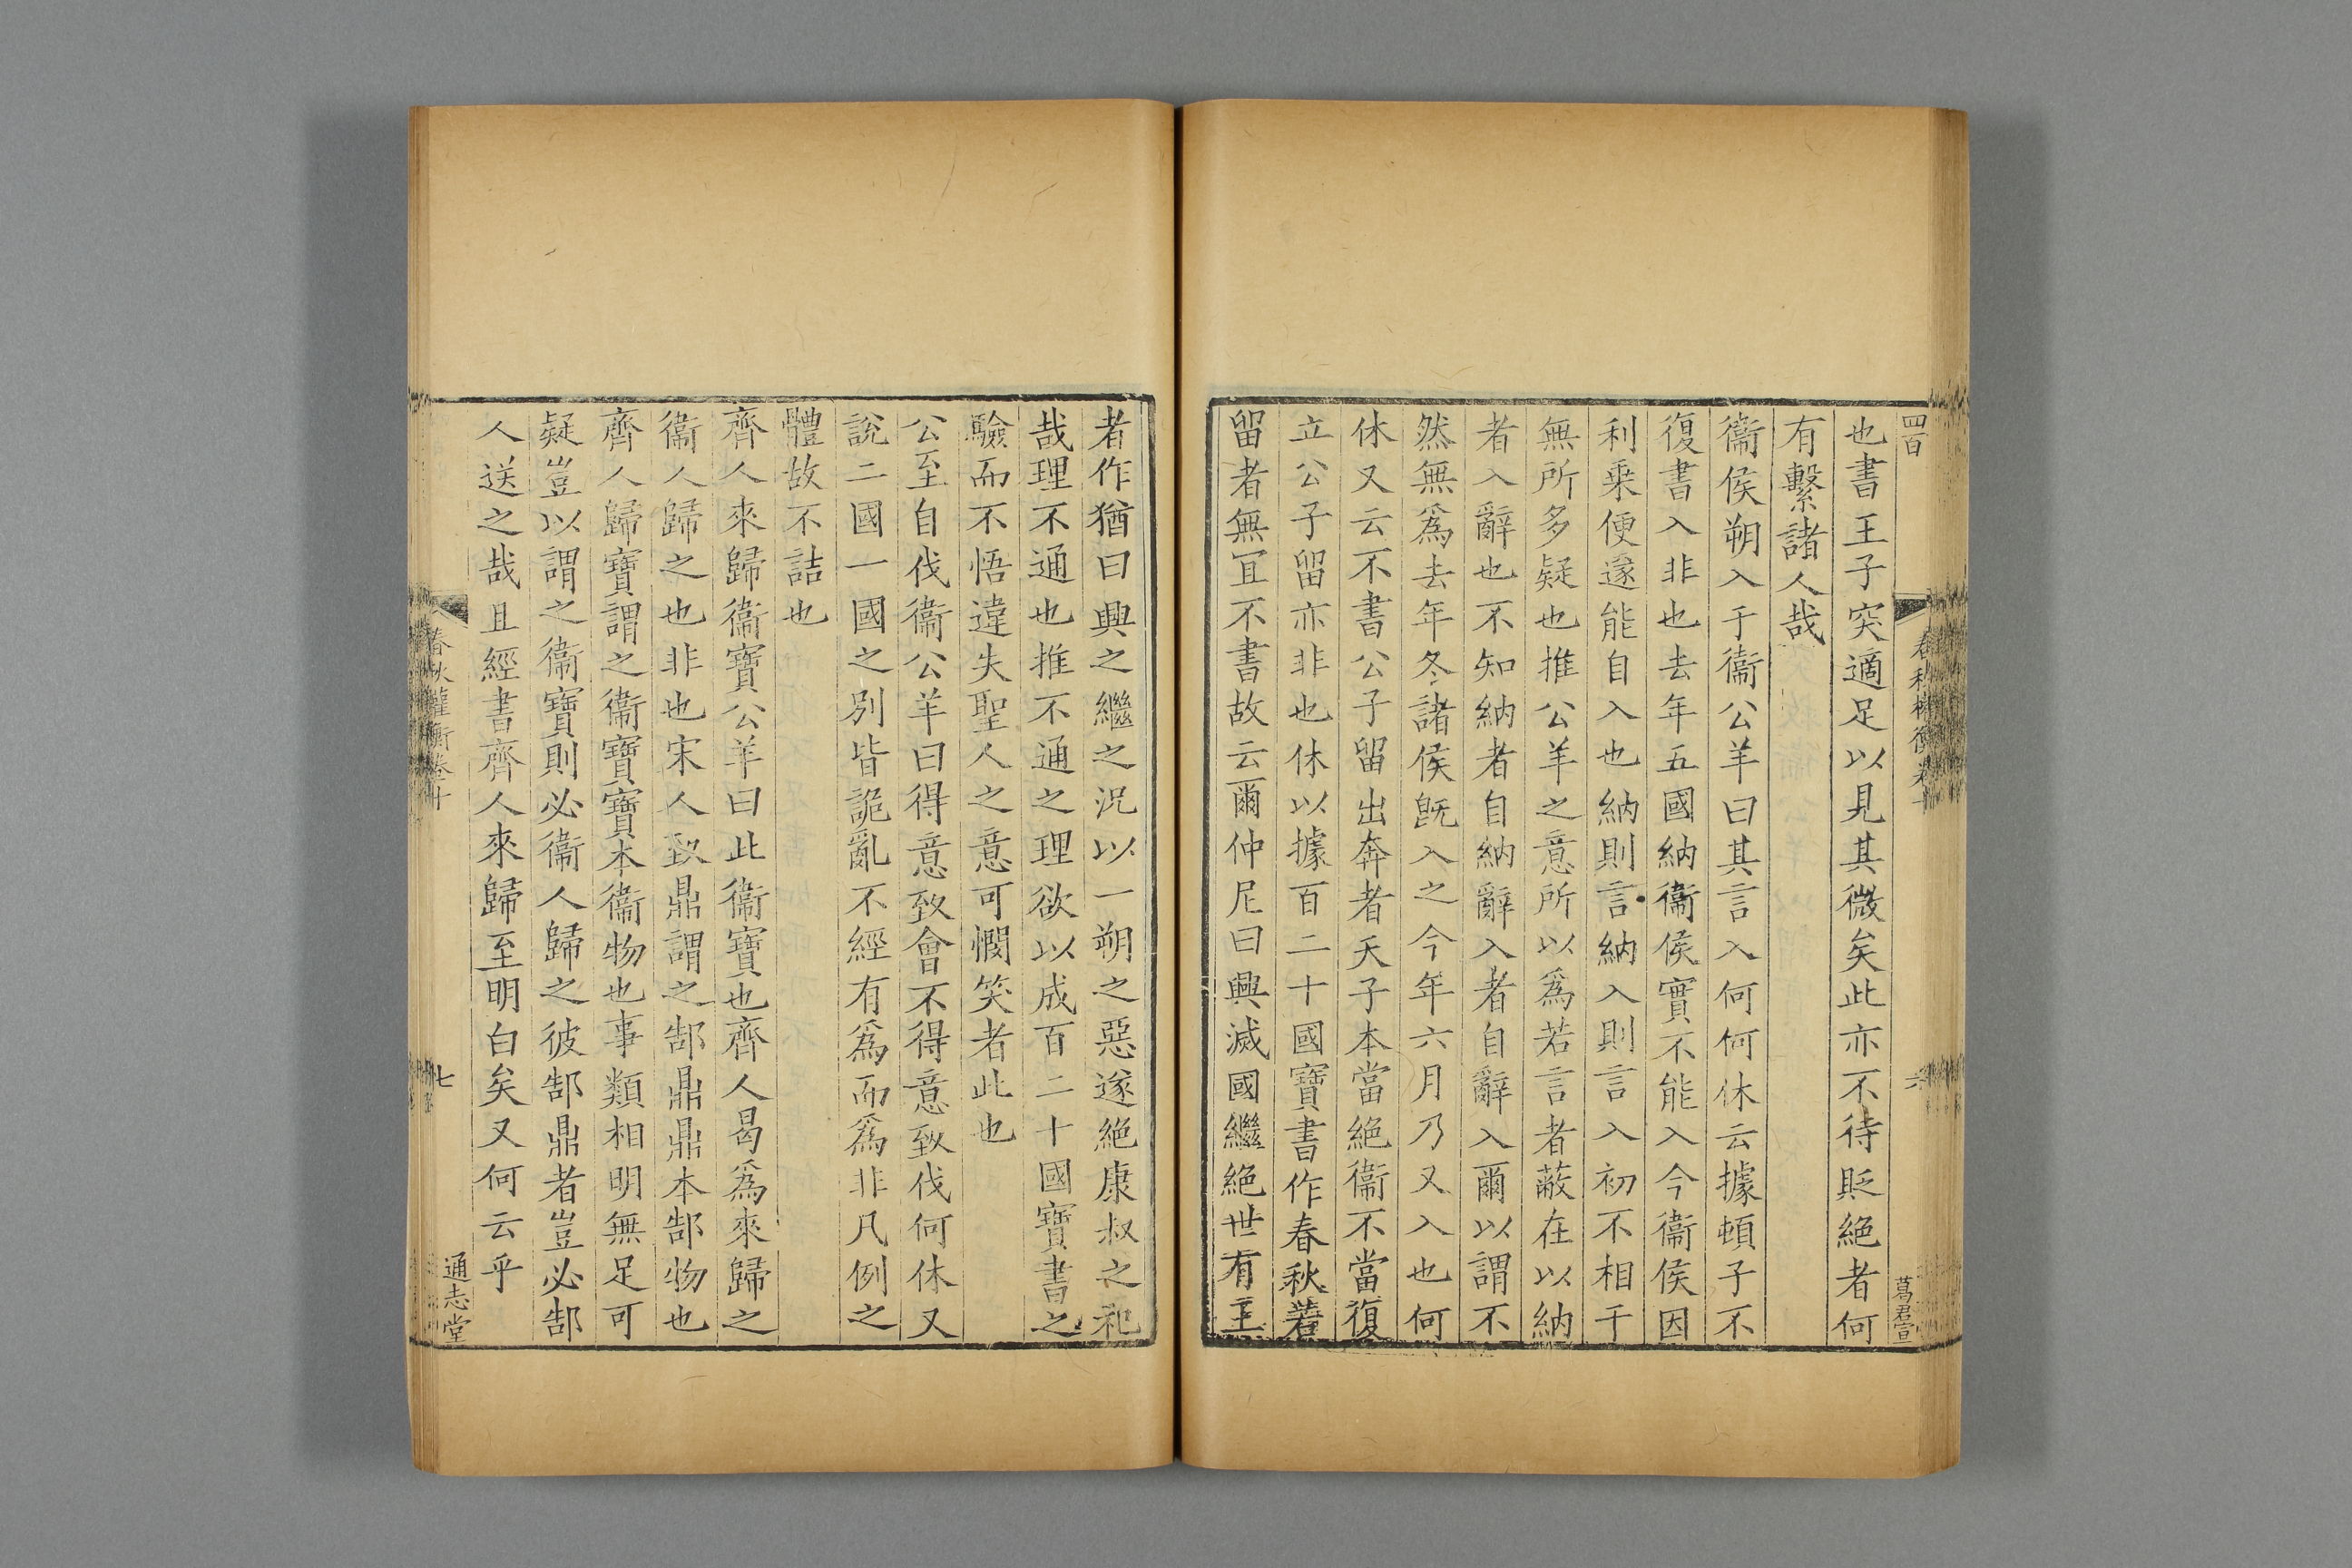 四百
春秋權衡卷十
六
葛君宣
也書王子突適足以見其微矣此亦不待貶絶者何
有繫諸人哉
衞侯朔入于衞公羊曰其言入何何休云據頓子不
復書入非也去年五國納衞侯實不能入今衞侯因
利乗便遂能自入也納則言納入則言入初不相干
無所多疑也推公羊之意所以爲若言者蔽在以納
者入辭也不知納者自納辭入者自辭入爾以謂不
然無爲去年冬諸侯旣入之今年六月乃又入也何
休又云不書公子留出奔者天子本當絶衞不當復
立公子留亦非也休以據百二十國寶書作春秋著
留者無冝不書故云爾仲尼曰興滅國繼絶世有王
者作猶曰興之繼之況以一朔之惡遂絶康叔之祀
哉理不通也推不通之理欲以成百二十國寶書之
驗而不悟違失聖人之意可憫笑者此也
公至自伐衞公羊曰得意致會不得意致伐何休又
說二國一國之別皆詭亂不經有爲而爲非凡例之
體故不詰也
齊人來歸衞寶公羊曰此衞寶也齊人曷爲來歸之
衞人歸之也非也宋人致鼎謂之郜鼎鼎本郜物也
齊人歸寶謂之衞寶寶本衞物也事類相明無足可
疑豈以謂之衞寶則必衞人歸之彼郜鼎者豈必郜
人送之哉且經書齊人來歸至明白矣又何云乎
春秋權衡卷十
七
通志堂